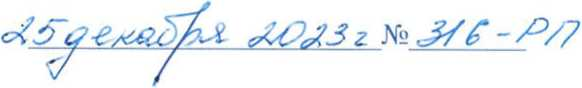 25 декабря 2023 г № 316-РП